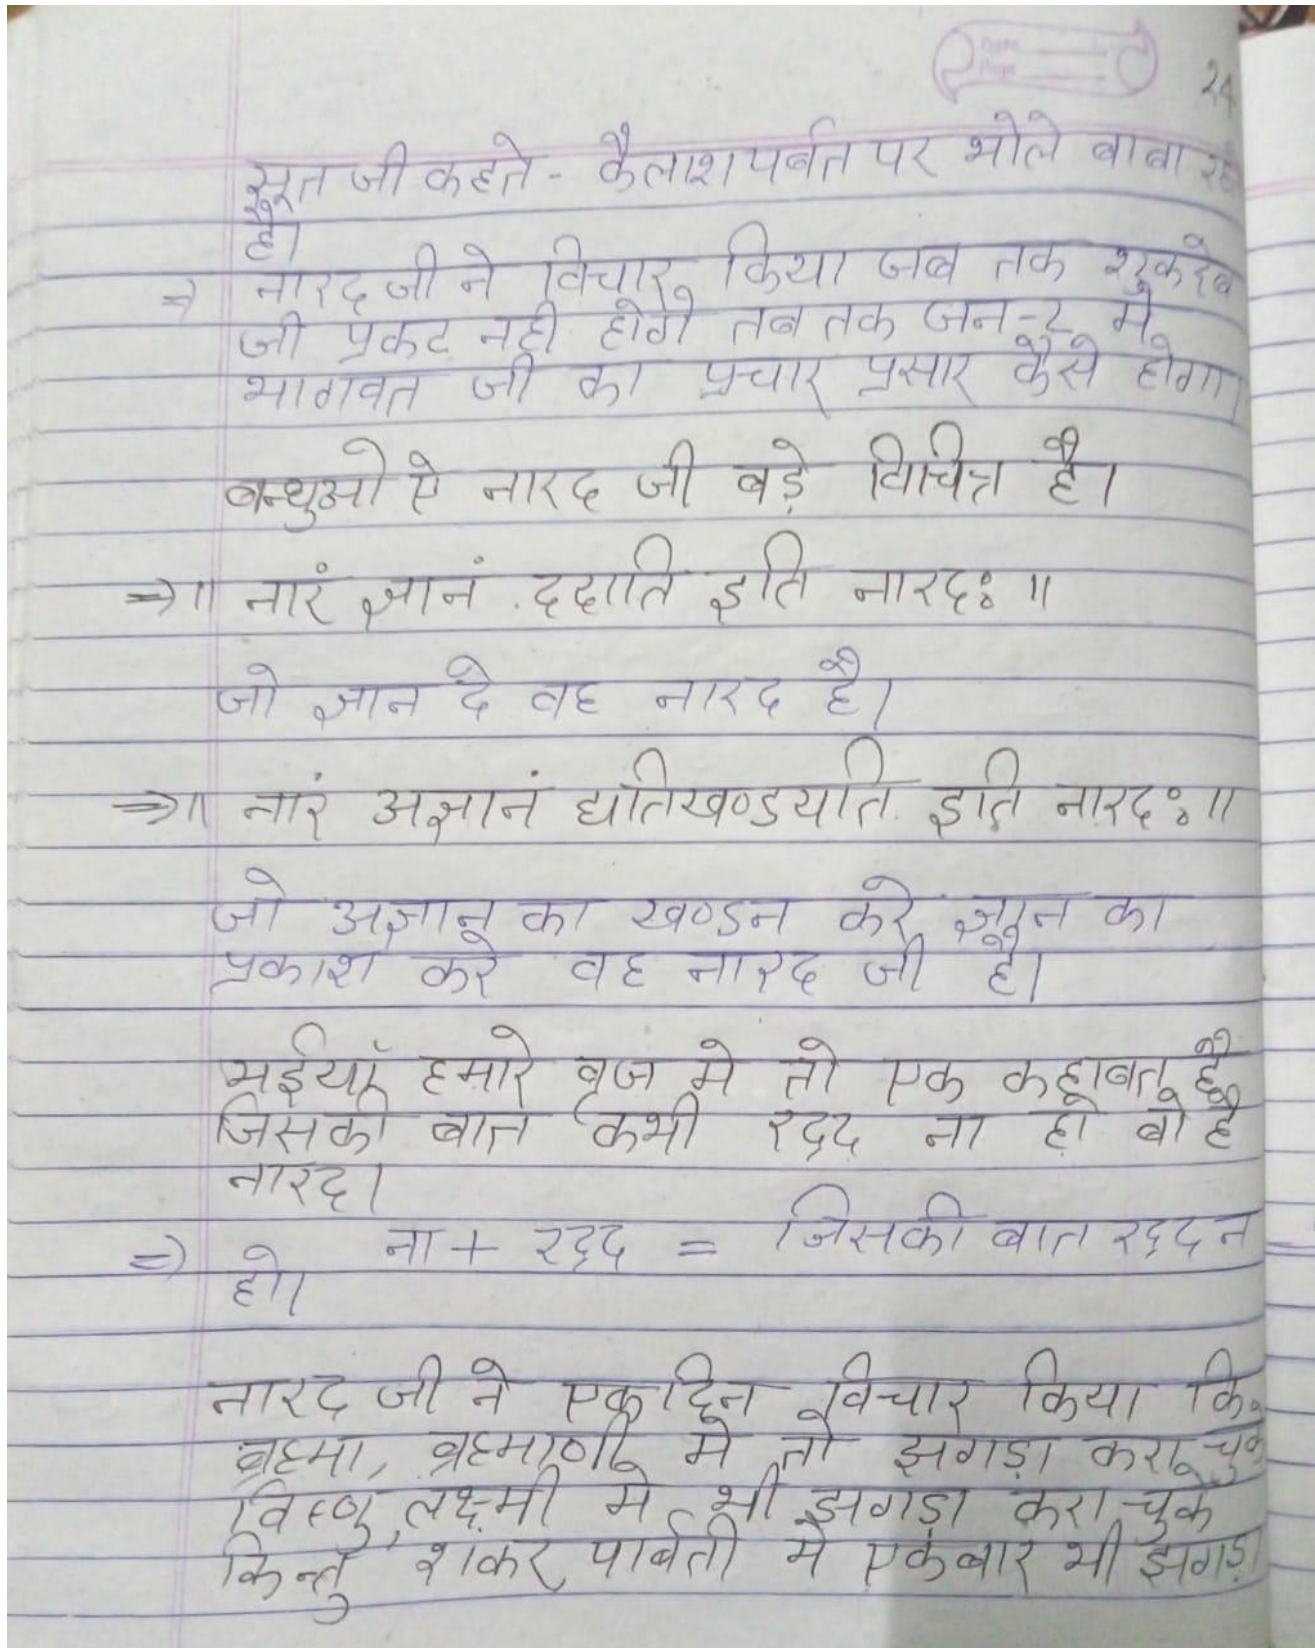 24
सूत जी कहते - कैलाश पर्बत पर भोले बाबा रह
है।
⇒ नारद जी ने विचार किया जब तक शुकदेब
जी प्रकट नही होगे तब तक जन-२ मे
भागवत जी का प्रचार प्रसार कैसे होगा
बन्धुओ ऐ नारद जी बड़े विचित्र है।
⇒॥ नारं ज्ञानं ददाति इति नारदः ॥
जो ज्ञान दे वह नारद है।
⇒॥ नारं अज्ञानं द्यतिखण्डयति इति नारदः ॥
जो अज्ञान का खण्डन करे ज्ञान का
प्रकाश करे वह नारद जी है।
भईयां हमारे बृज मे तो एक कहाबत है
जिसकी बात कभी रद्द ना हो बो है
नारद।
⇒ ना + रद्द = जिसकी बात रद्द न
हो।
नारद जी ने एक दिन विचार किया कि
ब्रह्मा, ब्रह्माणी मे तो झगड़ा करा चुके
विष्णु, लक्ष्मी मे भी झगड़ा करा चुके
किन्तु शंकर पार्बती मे एकबार भी झगड़ा